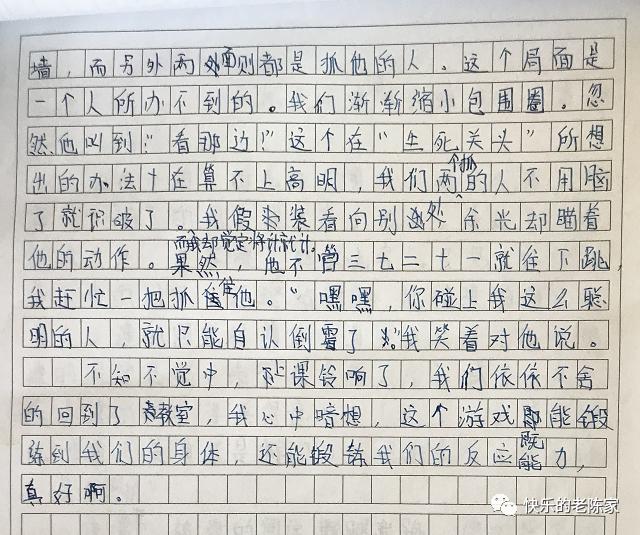 墙，而另外两面则都是抓他的人。这个局面是
一个人所办不到的。我们渐渐缩小包围圈。忽
然他叫到：“看那边！”这个在“生死关头”所想
出的办法十在算不上高明，我们两个抓的人不用脑
了就识破了。我假装看向别处余光却瞄着
而我却觉定将计就计。
他的动作。果然，他不管三七二十一就往下跳，
我赶忙一把抓住他。“嘿嘿，你碰上我这么聪
明的人，就只能自认倒霉了！”我笑着对他说。
不知不觉中，上课铃响了，我们依依不舍
的回到了教室，我心中暗想，这个游戏既能锻
练到我们的身体，还能锻练我们的反应能力，
真好啊。
快乐的老陈家